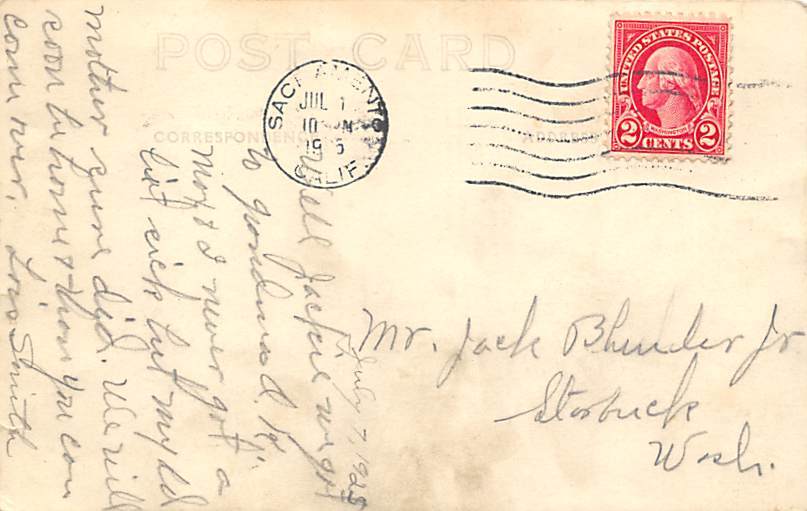 POST CARD
CORRESPONDENCE
ADDRESS
SACRAMENTO
JUL 1
10
CALIF.
UNITED STATES POSTAGE
WASHINGTON
2 CENTS 2
July 7, 1925
Well Jackie we got
to grandma's
and I never got a
bit sick but my
mother sure did. We will
soon be home & then you can
come over. Lois Smith
Mr. Jack Blunder Jr
Starbuck
Wash.